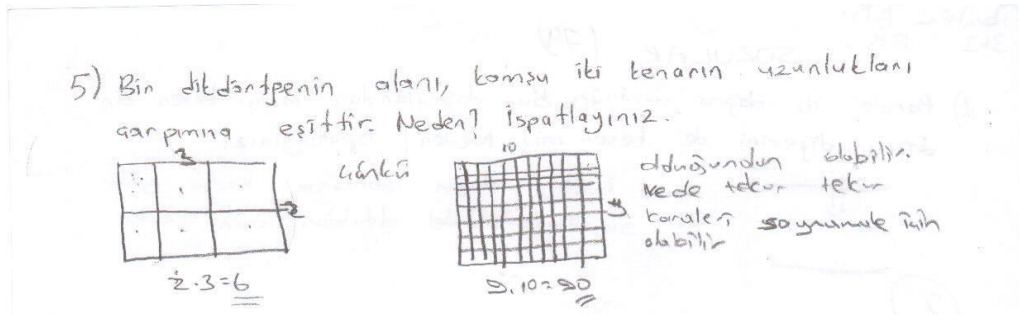 5) Bir dikdörtgenin alanı, komşu iki kenarın uzunlukları
çarpımına eşittir. Neden? İspatlayınız.
3
2
2.3=6
çünkü
10
9
9.10=90
olduğundan olabilir.
Nede tekur tekur
kareleri saymamak için
olabilir